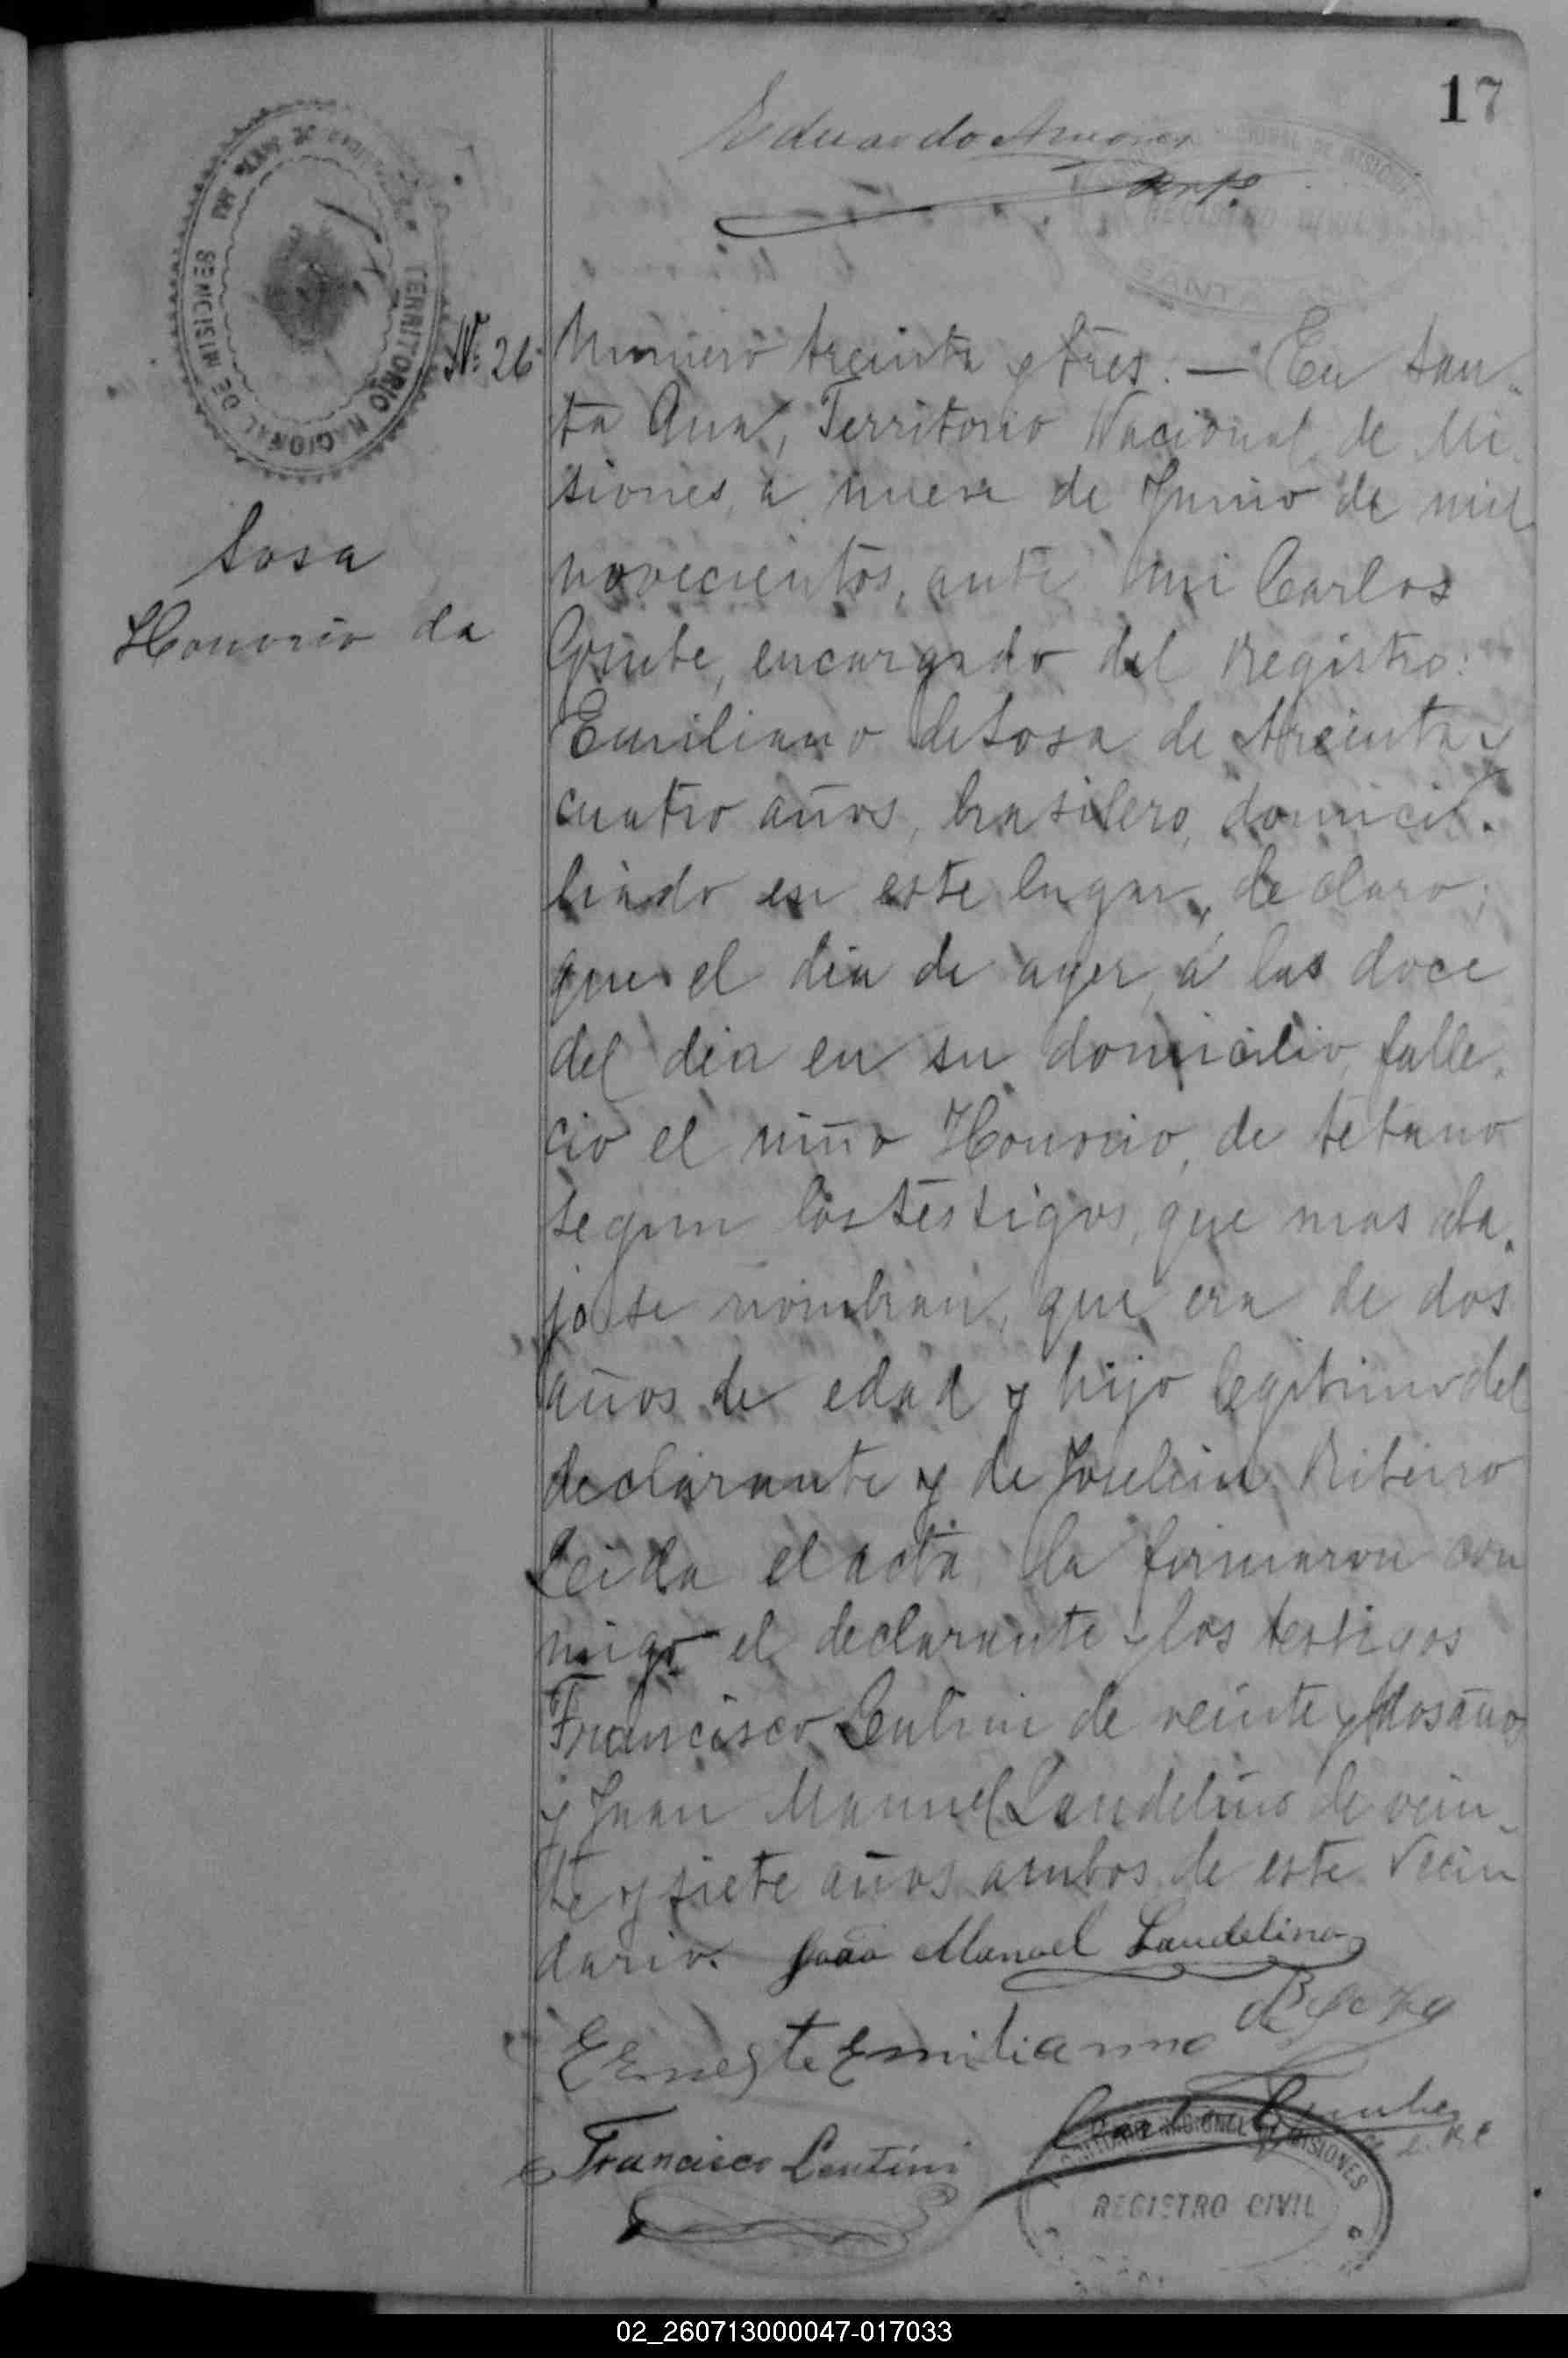 17
Eduardo
TERRITORIO NACIONAL DE MISIONES
REGISTRO CIVIL
Nº 26
Sosa
Honorio da
Numero treinta y tres. — En San-
ta Ana, Territorio Nacional de Mi-
siones, a nueve de Junio de mil
novecientos, ante mi Carlos
encargado del Registro:
Emiliano de Sosa de treinta y
cuatro años, brasilero, domici-
liado en este lugar, declaro;
que el dia de ayer, a las doce
del dia en su domicilio, falle-
cio el niño Honorio, de tetano
segun los testigos, que mas aba-
jo se nombran, que era de dos
años de edad y hijo legitimo del
declarante y de Ribeiro
Leida el acta la firmaron con
migo el declarante y los testigos
Francisco Lentini de veinte y dos años
y Juan Manuel Laudelino de vein-
te y siete años ambos de este Vecin
dario. João Manoel Laudelino
Ernesto Emilianno de Soza
Francisco Lentini
TERRITORIO NACIONAL DE MISIONES
REGISTRO CIVIL
02_260713000047-017033